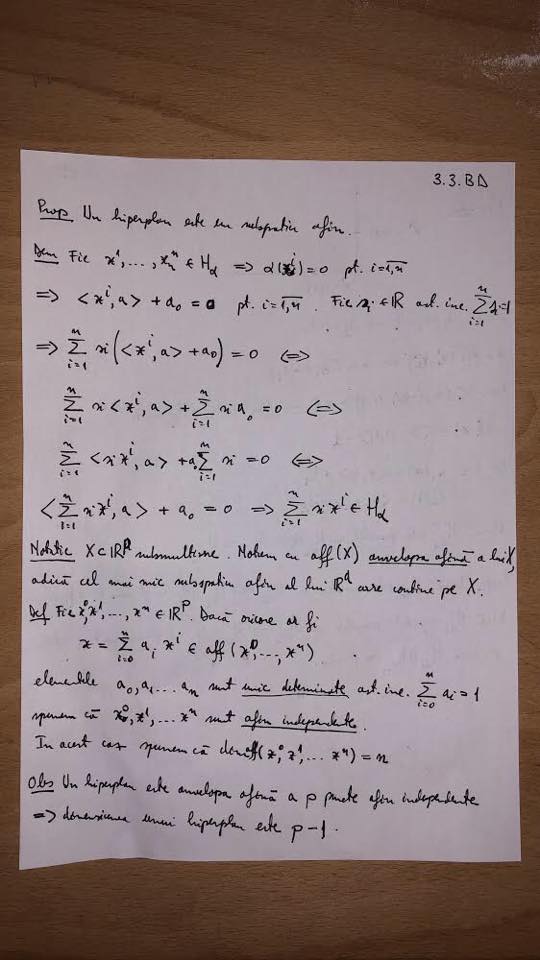 3.3.BD
Prop Un hiperplan este un subspatiu afin.
Dem Fie x¹, ..., xⁿ ∈ H_α => α(xⁱ) = 0 pt. i=1,n
=> <xⁱ, a> + a₀ = 0 pt. i=1,n. Fie si ∈ ℝ ast. inc. ∑_{i=1}^{n} si=1
=> ∑_{i=1}^{n} si(<xⁱ, a> + a₀) = 0 <=>
∑_{i=1}^{n} si<xⁱ, a> + ∑_{i=1}^{n} si a₀ = 0 <=>
∑_{i=1}^{n} <si xⁱ, a> + a₀ ∑_{i=1}^{n} si = 0 <=>
<∑_{i=1}^{n} si xⁱ, a> + a₀ = 0 => ∑_{i=1}^{n} si xⁱ ∈ H_α
Notatie X⊂ℝᵖ submultime. Notam cu aff(X) anvelopa afină a lui X,
adică cel mai mic subspatiu afin al lui ℝᵈ care contine pe X.
Def Fie x⁰, x¹, ..., xⁿ ∈ ℝᵖ. Dacă oricare ar fi
x = ∑_{i=0}^{n} a_i xⁱ ∈ aff(x⁰, ..., xⁿ)
elementele a₀, a₁ ... aₙ sunt unic determinate ast. inc. ∑_{i=0}^{n} ai = 1
spunem că x⁰, x¹, ... xⁿ sunt afin independente.
In acest caz spunem că dim aff(x⁰, x¹, ... xⁿ) = n
Obs Un hiperplan este anvelopa afină a p puncte afin independente
=> dimensiunea unui hiperplan este p-1.